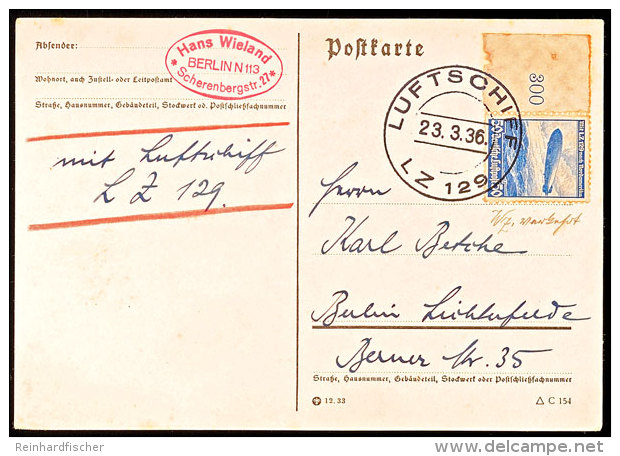 Absender:
Hans Wieland
BERLIN N 113
* Scherenbergstr. 27 *
Wohnort, auch Zustell- oder Leitpostamt
Straße, Hausnummer, Gebäudeteil, Stockwerk od. Postschließfachnummer
mit Luftschiff
L Z 129.
Postkarte
LUFTSCHIFF
23.3.36.
LZ 129
300
50
50
Wz. verkehrt
Herrn
Karl Betche
Berlin Lichterfelde
Berner Str. 35
Straße, Hausnummer, Gebäudeteil, Stockwerk oder Postschließfachnummer
12.33
C 154
Reinhardfischer
delcampe.net